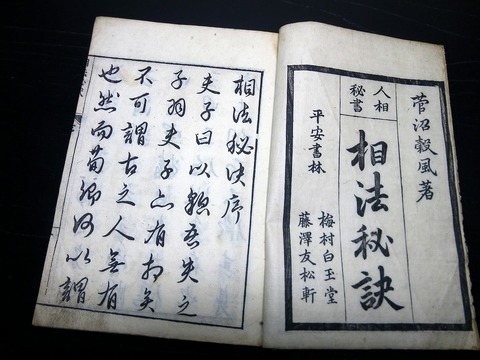 菅沼穀風著
人相
秘書
相法秘訣
平安書林
梅村白玉堂
藤澤友松軒
相法秘决序
夫子曰以貌吾失之
子羽夫子亦有相矣
不可謂古之人無有
也然而荀卿何以謂